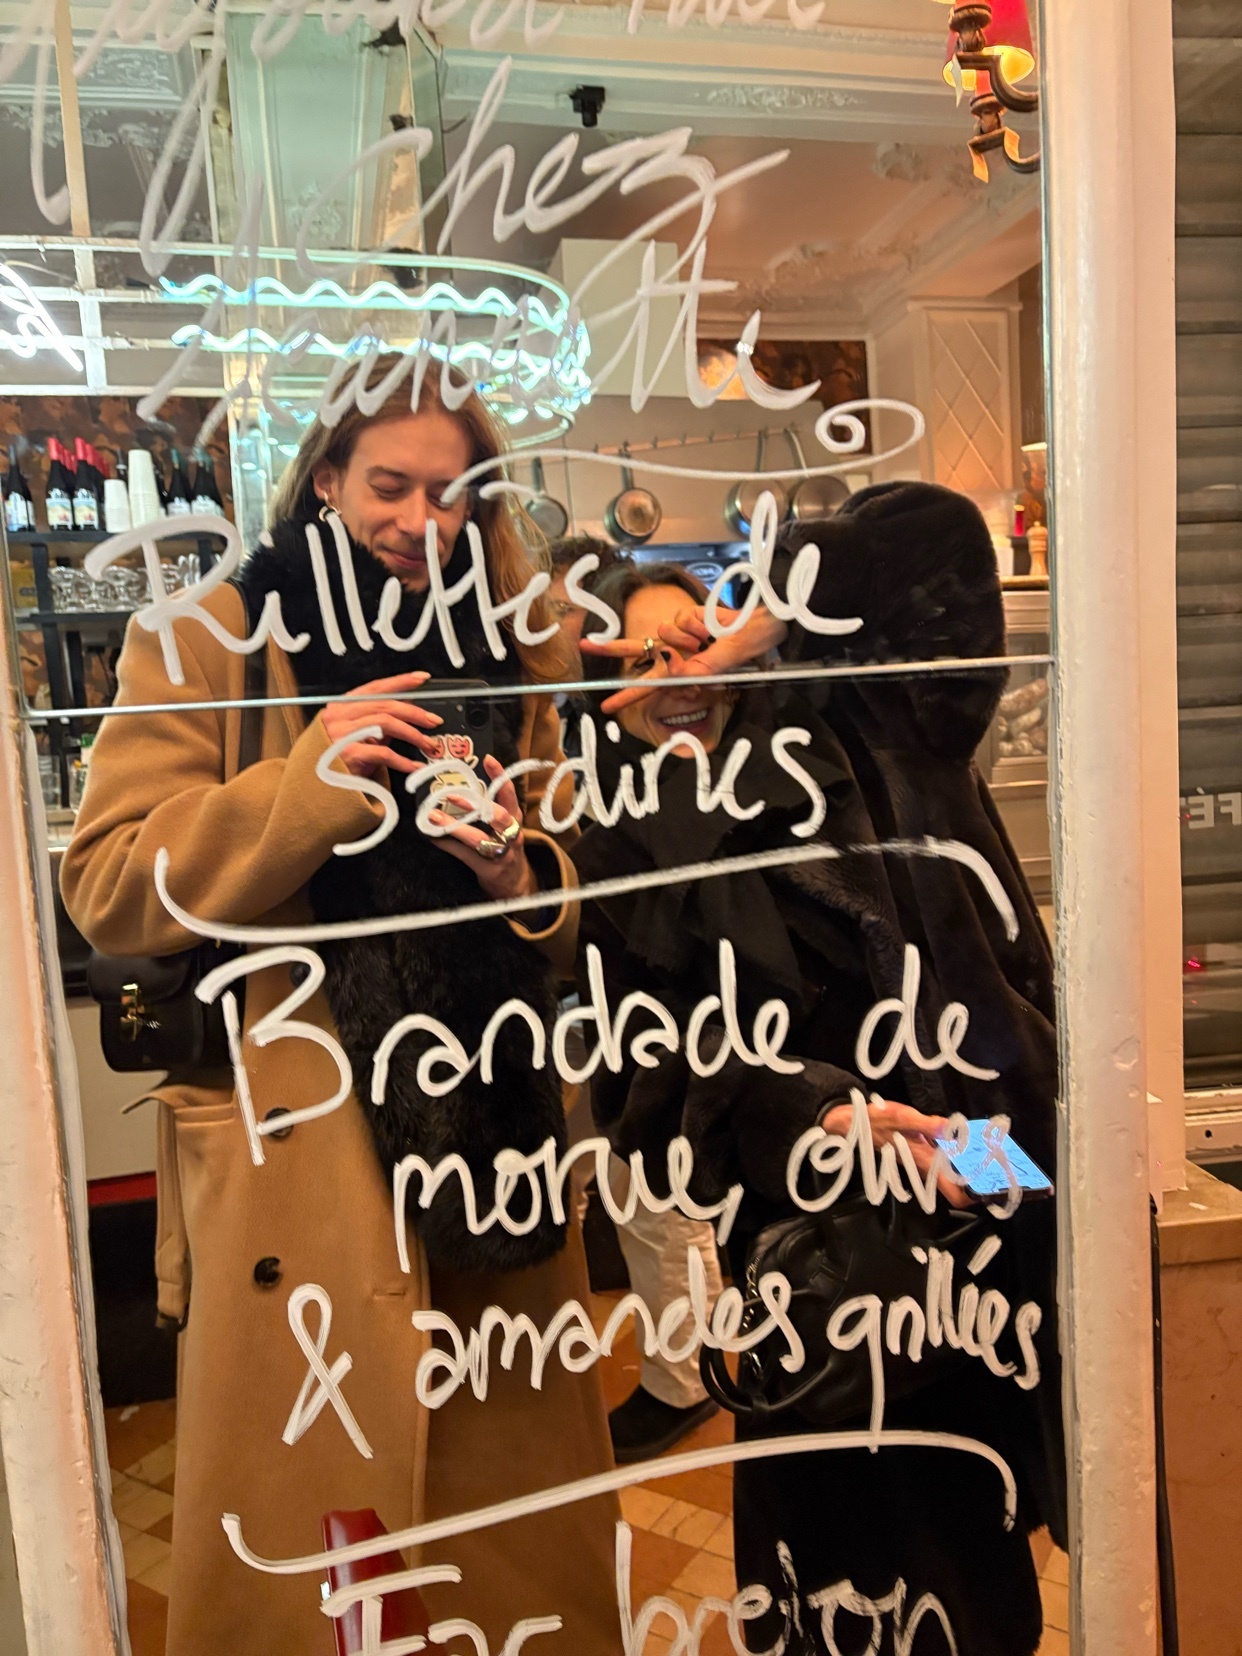 Aujourd'hui
chez
Jeannette
Rillettes de
Sardines
Brandade de
morue, olives
& amandes grillées
Far breton